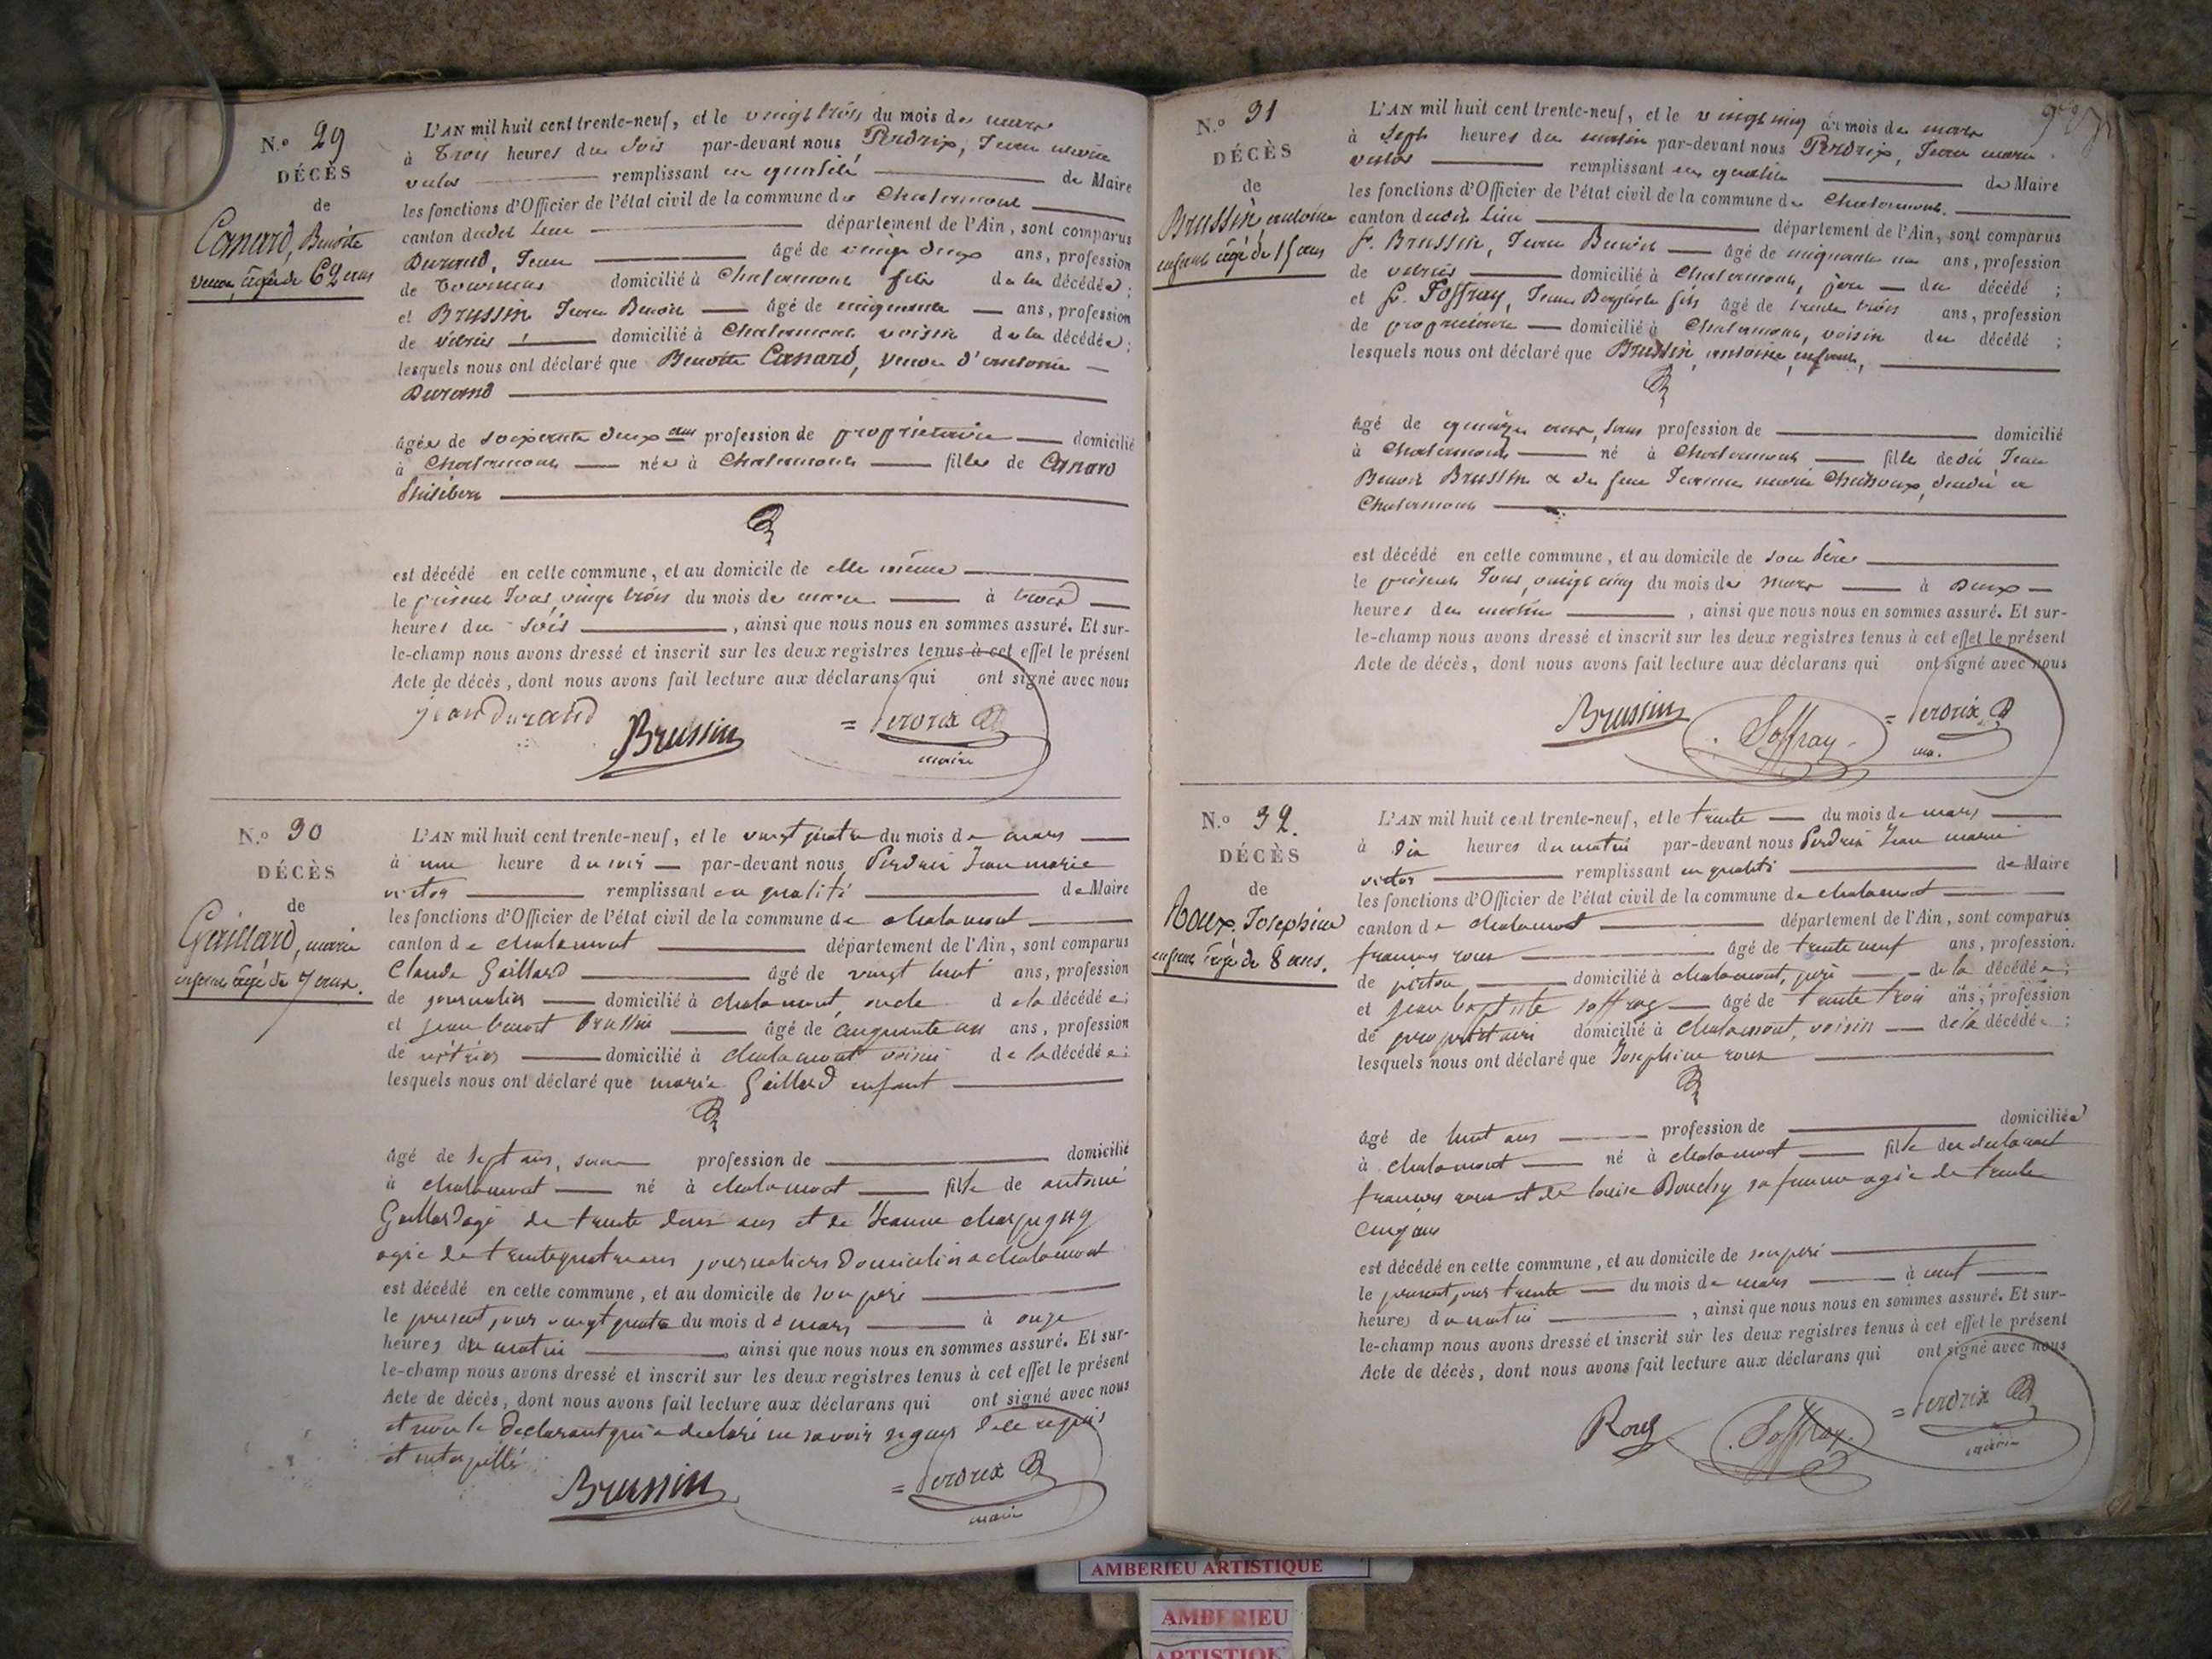 N.° 29
DÉCÈS
de
Canard, Benoite
veuve, âgée de 62 ans
L'AN mil huit cent trente-neuf, et le vingt trois du mois de mars
à trois heures du soir par-devant nous Perdrix, Jean marie
victor remplissant en qualité de Maire
les fonctions d'Officier de l'état civil de la commune de Chalamont
canton dudit lieu département de l'Ain, sont comparus
Durand, Jean âgé de vingt deux ans, profession
de domicilié à Chalamont fils de la décédée;
et Brussin Jean Benoit âgé de cinquante ans, profession
de vitrier domicilié à Chalamont voisin de la décédée;
lesquels nous ont déclaré que Benoite Canard, veuve d'antoine
Durand
âgée de soixante deux ans profession de propriétaire domicilié
à Chalamont née à Chalamont fille de Canard
est décédé en cette commune, et au domicile de elle même
le présent Jour, vingt trois du mois de mars à trois
heures du soir, ainsi que nous nous en sommes assuré. Et sur-
le-champ nous avons dressé et inscrit sur les deux registres tenus à cet effet le présent
Acte de décès, dont nous avons fait lecture aux déclarans qui ont signé avec nous
jean durand Brussin = Perdrix
maire
N.° 30
DÉCÈS
de
Gaillard, marie
enfant âgé de 7 ans.
L'AN mil huit cent trente-neuf, et le vingt quatre du mois de mars
à une heure du soir par-devant nous Perdrix Jean marie
victor remplissant en qualité de Maire
les fonctions d'Officier de l'état civil de la commune de chalamont
canton de chalamont département de l'Ain, sont comparus
Claude Gaillard âgé de vingt huit ans, profession
de journalier domicilié à chalamont, oncle de la décédée;
et jean benoit brussin âgé de cinquante un ans, profession
de vitrier domicilié à chalamont voisin de la décédée;
lesquels nous ont déclaré que marie Gaillard enfant
âgé de sept ans, sans profession de domicilié
à chalamont né à chalamont fille de antoine
Gaillard agé de trente deux ans et de Jeanne charpigny
agée de trente quatre ans journaliers domiciliés a chalamont
est décédé en cette commune, et au domicile de son père
le présent jour vingt quatre du mois de mars à onze
heures du matin ainsi que nous nous en sommes assuré. Et sur-
le-champ nous avons dressé et inscrit sur les deux registres tenus à cet effet le présent
Acte de décès, dont nous avons fait lecture aux déclarans qui ont signé avec nous
et non le declarant qui a declaré ne savoir signer de ce requis
et interpellé
Brussin = Perdrix
maire
N.° 31
DÉCÈS
de
Brussin, antoine
enfant âgé de 15 ans
L'AN mil huit cent trente-neuf, et le vingt cinq du mois de mars
à Sept heures du matin par-devant nous Perdrix, Jean marie
victor remplissant en qualité de Maire
les fonctions d'Officier de l'état civil de la commune de Chalamont.
canton dudit Lieu département de l'Ain, sont comparus
Sr. Brussin, Jean Benoit âgé de cinquante un ans, profession
de vitrier domicilié à Chalamont, père du décédé;
et Sr. Soffray, Jean Baptiste fils âgé de trente trois ans, profession
de propriétaire domicilié à Chalamont, voisin du décédé;
lesquels nous ont déclaré que Brussin, antoine, enfant,
âgé de quinze ans, sans profession de domicilié
à Chalamont né à Chalamont fils dudit Jean
Benoit Brussin & de feue Jeanne marie
Chalamont
est décédé en cette commune, et au domicile de son Père
le présent Jour, vingt cinq du mois de mars à Deux
heures du matin, ainsi que nous nous en sommes assuré. Et sur-
le-champ nous avons dressé et inscrit sur les deux registres tenus à cet effet le présent
Acte de décès, dont nous avons fait lecture aux déclarans qui ont signé avec nous
Brussin Soffray = Perdrix
ma.
N.° 32.
DÉCÈS
de
Roux, Josephine
enfant âgé de 8 ans.
L'AN mil huit cent trente-neuf, et le trente du mois de mars
à dix heures du matin par-devant nous Perdrix Jean marie
victor remplissant en qualité de Maire
les fonctions d'Officier de l'état civil de la commune de chalamont
canton de chalamont département de l'Ain, sont comparus
françois roux âgé de trente neuf ans, profession
de domicilié à chalamont, père de la décédée;
et jean baptiste soffray âgé de trente trois ans, profession
de propriétaire domicilié à chalamont, voisin de la décédée;
lesquels nous ont déclaré que Josephine roux
âgé de huit ans profession de domiciliée
à chalamont né à chalamont fille du déclarant
françois roux et de louise Bouchy sa femme agée de trente
cinq ans
est décédé en cette commune, et au domicile de son père
le présent jour trente du mois de mars à neuf
heures du matin, ainsi que nous nous en sommes assuré. Et sur-
le-champ nous avons dressé et inscrit sur les deux registres tenus à cet effet le présent
Acte de décès, dont nous avons fait lecture aux déclarans qui ont signé avec nous
Roux Soffray = Perdrix
maire
AMBERIEU ARTISTIQUE
AMBERIEU
ARTISTIQUE